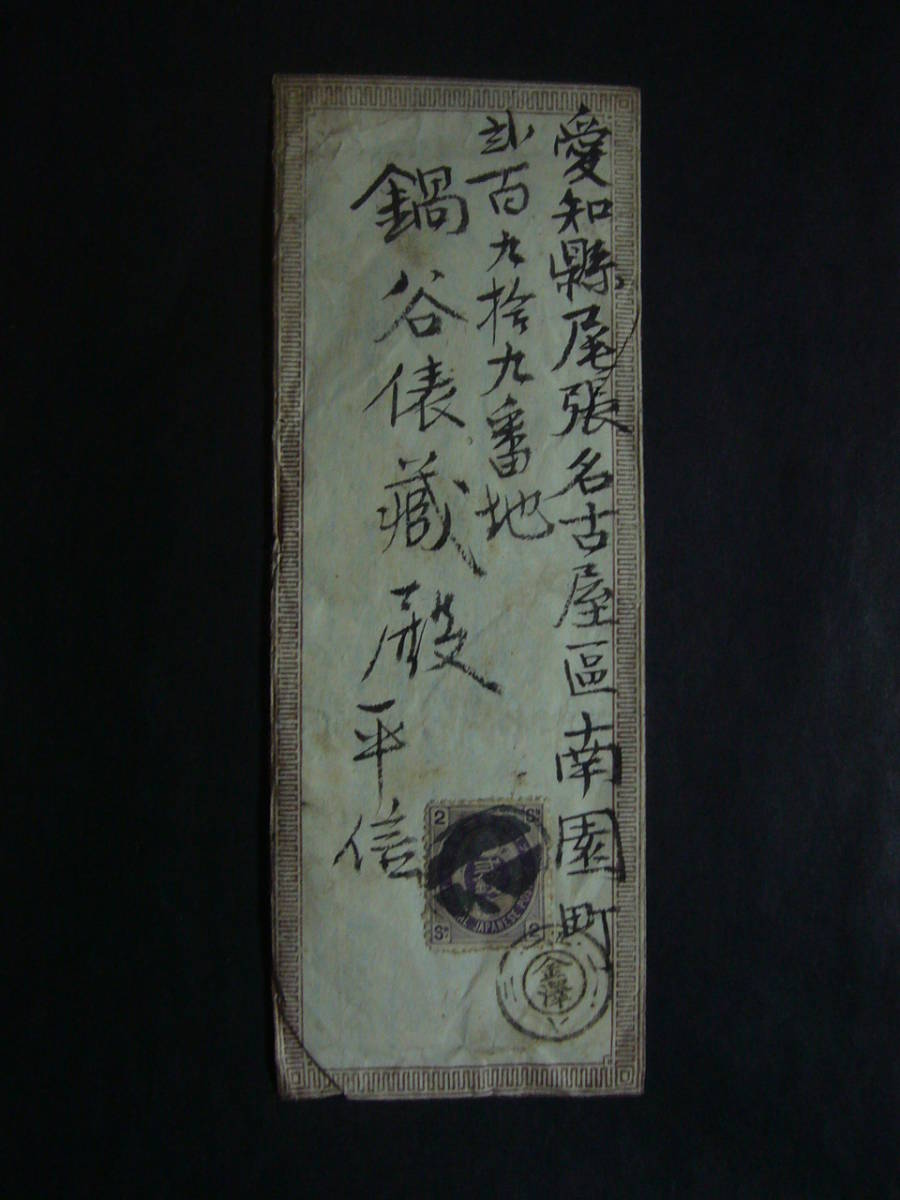 愛知縣尾張名古屋區南園町
弐百九拾九番地
鍋谷俵藏殿
平信
2 Sn
JAPANESE
Sn 2
金澤